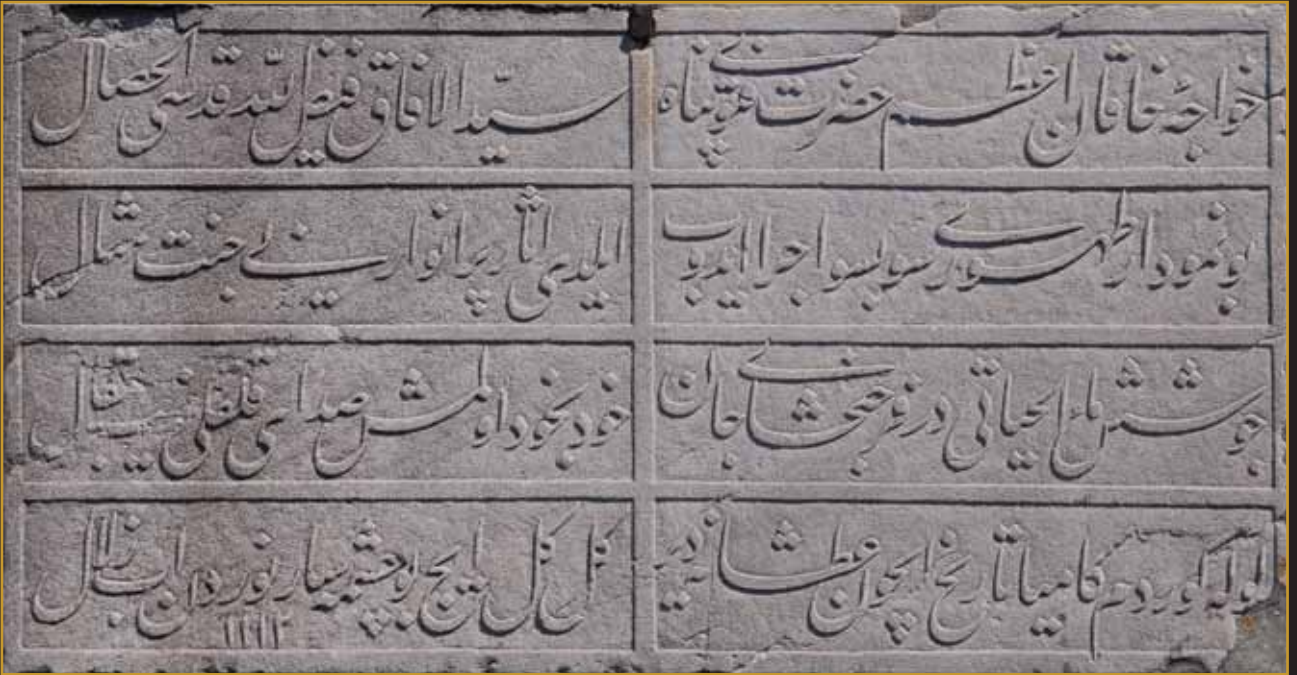 خواجهٔ خاقان اعظم حضرت عزت پناه
سید الافاق فیض الله قدسی الخصال
بو نمودار طهوری سو بسو اجرا ایدوب
ایلدی اثار پر انوارینی جنت مثال
جوشش ماء الحیاتی در فرحبخشای جان
خود بخود اولمش صدای قلقلی
لوله کوردم کامیا تاریخ ایچون عطشانه دیر
کل کل ایچ بو چشمه سار نوردن اب زلال
١٢١٢